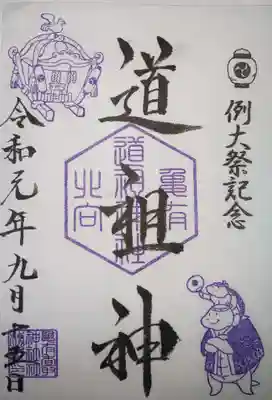 例大祭記念
道祖神
亀有
道祖神社
北向
令和元年九月十五日